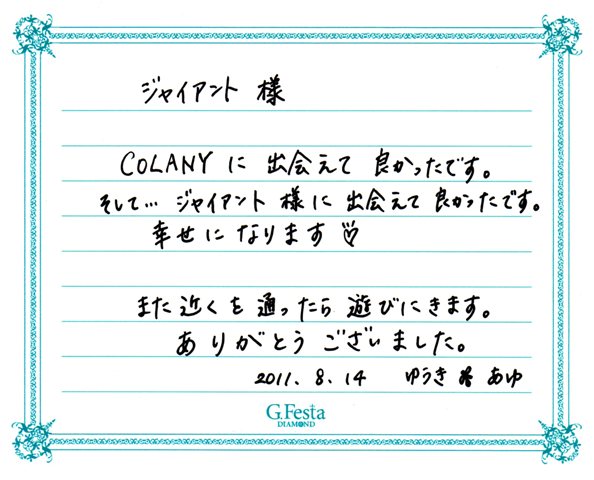 ジャイアント 様
COLANY に 出会えて 良かったです。
そして… ジャイアント 様に 出会えて 良かったです。
幸せになります♡
また 近くを 通ったら 遊びにきます。
ありがとう ございました。
2011. 8. 14 ゆうき & あゆ
G.Festa
DIAMOND